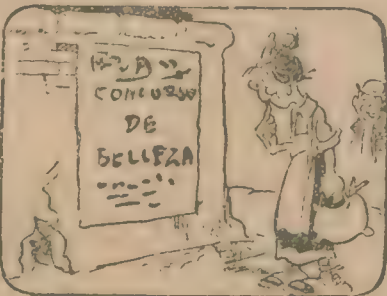 CONCURSO
DE
BELLEZA